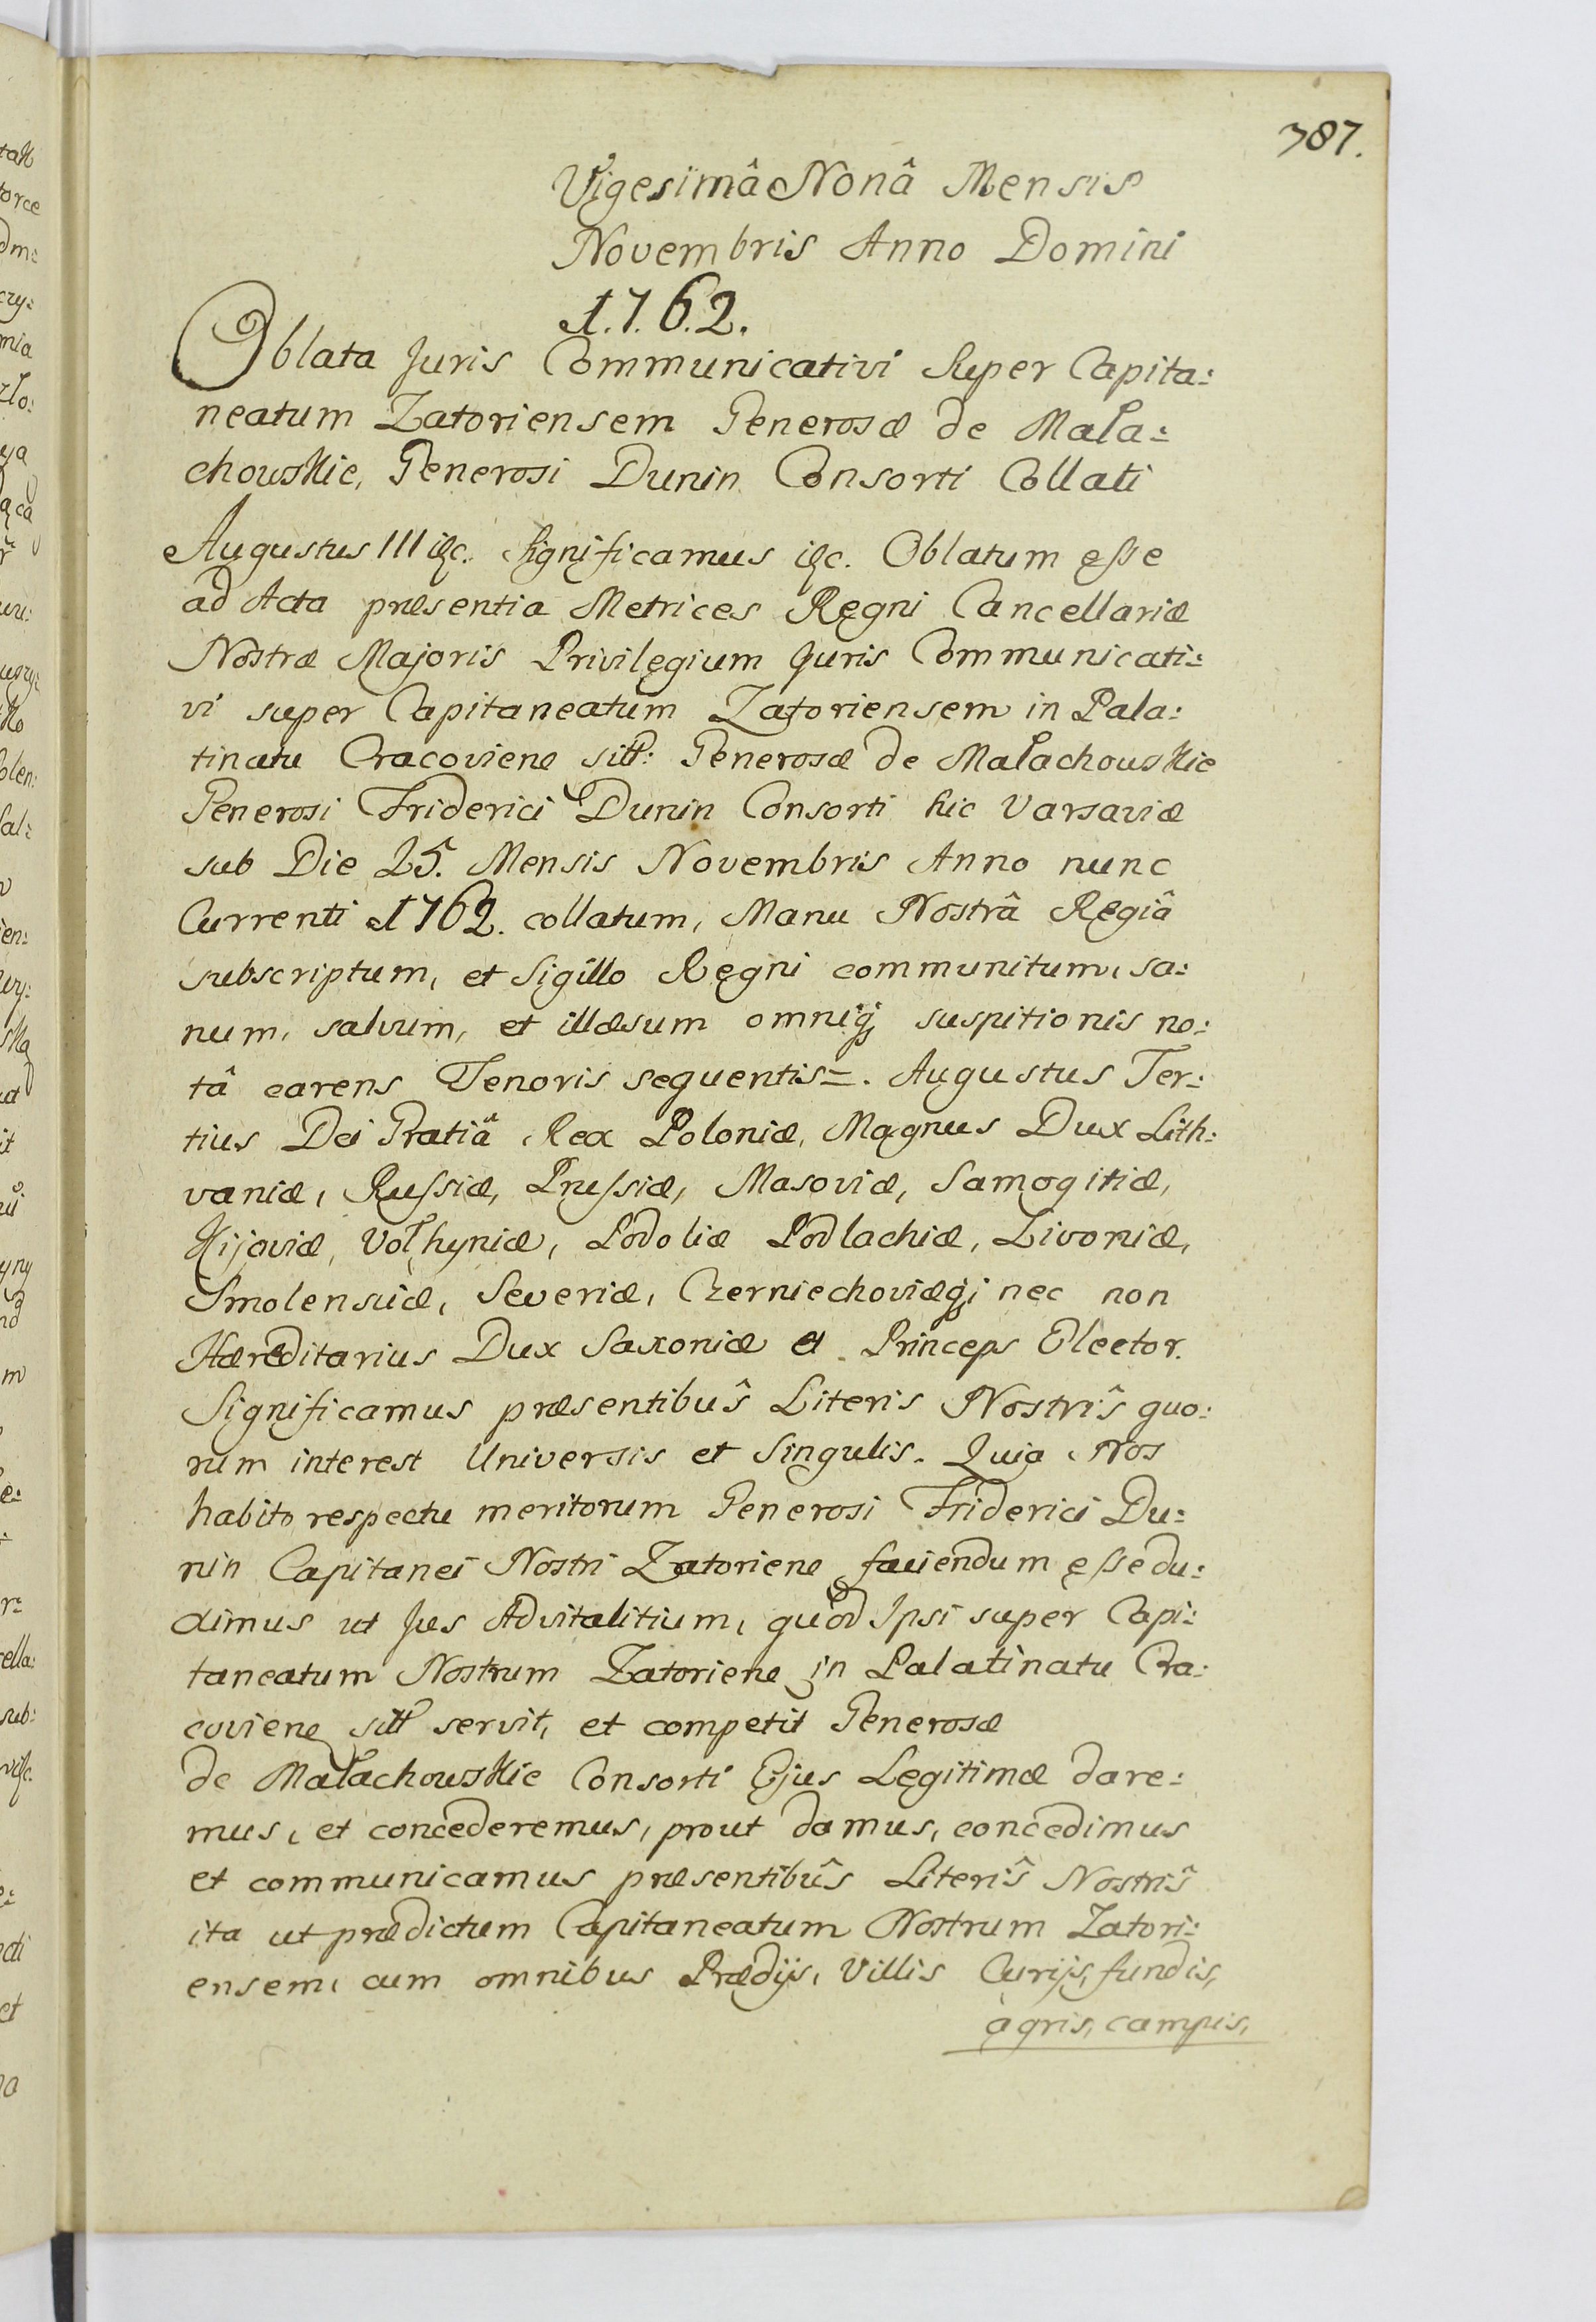 787.
Vigesimâ Nonâ Mensis
Novembris Anno Domini
1.7.6.2.
Oblata Juris Communicativi super Capita:
neatum Zatoriensem Generosæ de Mała:
chowskie, Generosi Dunin Consorti Collati
Augustus III etc. Significamus etc. Oblatum esse
ad Acta præsentia Metrices Regni Cancellariæ
Nostræ Majoris Privilegium Juris Communicati:
vi super Capitaneatum Zatoriensem in Pala:
tinatu Cracoviene sitt: Generosæ de Małachowskie
Generosi Friderici Dunin Consorti hic Varsaviæ
sub Die 25. Mensis Novembris Anno nunc
Currenti 1762. collatum, Manu Nostrâ Regiâ
subscriptum, et Sigillo Regni communitum, sa:
num, salvum, et illæsum omniq; suspitionis no:
tâ carens Tenoris sequentis=. Augustus Ter:
tius Dei Gratiâ Rex Poloniæ, Magnus Dux Lith:
vaniæ, Russiæ, Prussiæ, Masoviæ, Samogitiæ,
Kijoviæ, Volhyniæ, Podoliæ Podlachiæ, Livoniæ,
Smolensciæ, Severiæ, Czerniechoviæq; nec non
Hæreditarius Dux Saxoniæ et Princeps Elector.
Significamus præsentibûs Literis Nostrîs quo:
rum interest Universis et Singulis. Quia Nos
habito respectu meritorum Generosi Friderici Du:
nin Capitanei Nostri Zatoriene faciendum esse du:
ximus ut Jus Advitalitium, quod Ipsi super Capi:
taneatum Nostrum Zatoriene in Palatinatu Cra:
coviene sitt servit, et competit Generosæ
de Małachowskie Consorti Ejus Legitimæ dare:
mus, et concederemus, prout damus, concedimus
et communicamus præsentibûs Literîs Nostrîs
ita ut prædictum Capitaneatum Nostrum Zatori:
ensem, cum omnibus Prædijs, Villis Curijs, fundis,
agris, campis,